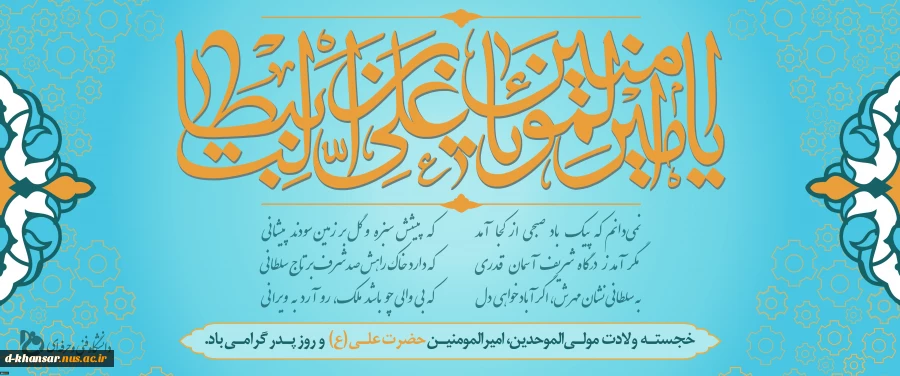 یا امیرالمومنین یا علی بن ابیطالب
نمی‌دانم که پیک باد صبحی از کجا آمد که پیشش سبزه و گل بر زمین سودند پیشانی
مگر آمد ز درگاه شریف آسمان قدری که دارد خاک راهش صد شرف بر تاج سلطانی
به سلطانی نشان مهرش، اگر آباد خواهی دل که بی والی چو باشد ملک، رو آرد به ویرانی
خجسته ولادت مولی‌الموحدین، امیرالمومنین حضرت علی (ع) و روز پدر گرامی باد.
d-khansar.nus.ac.ir